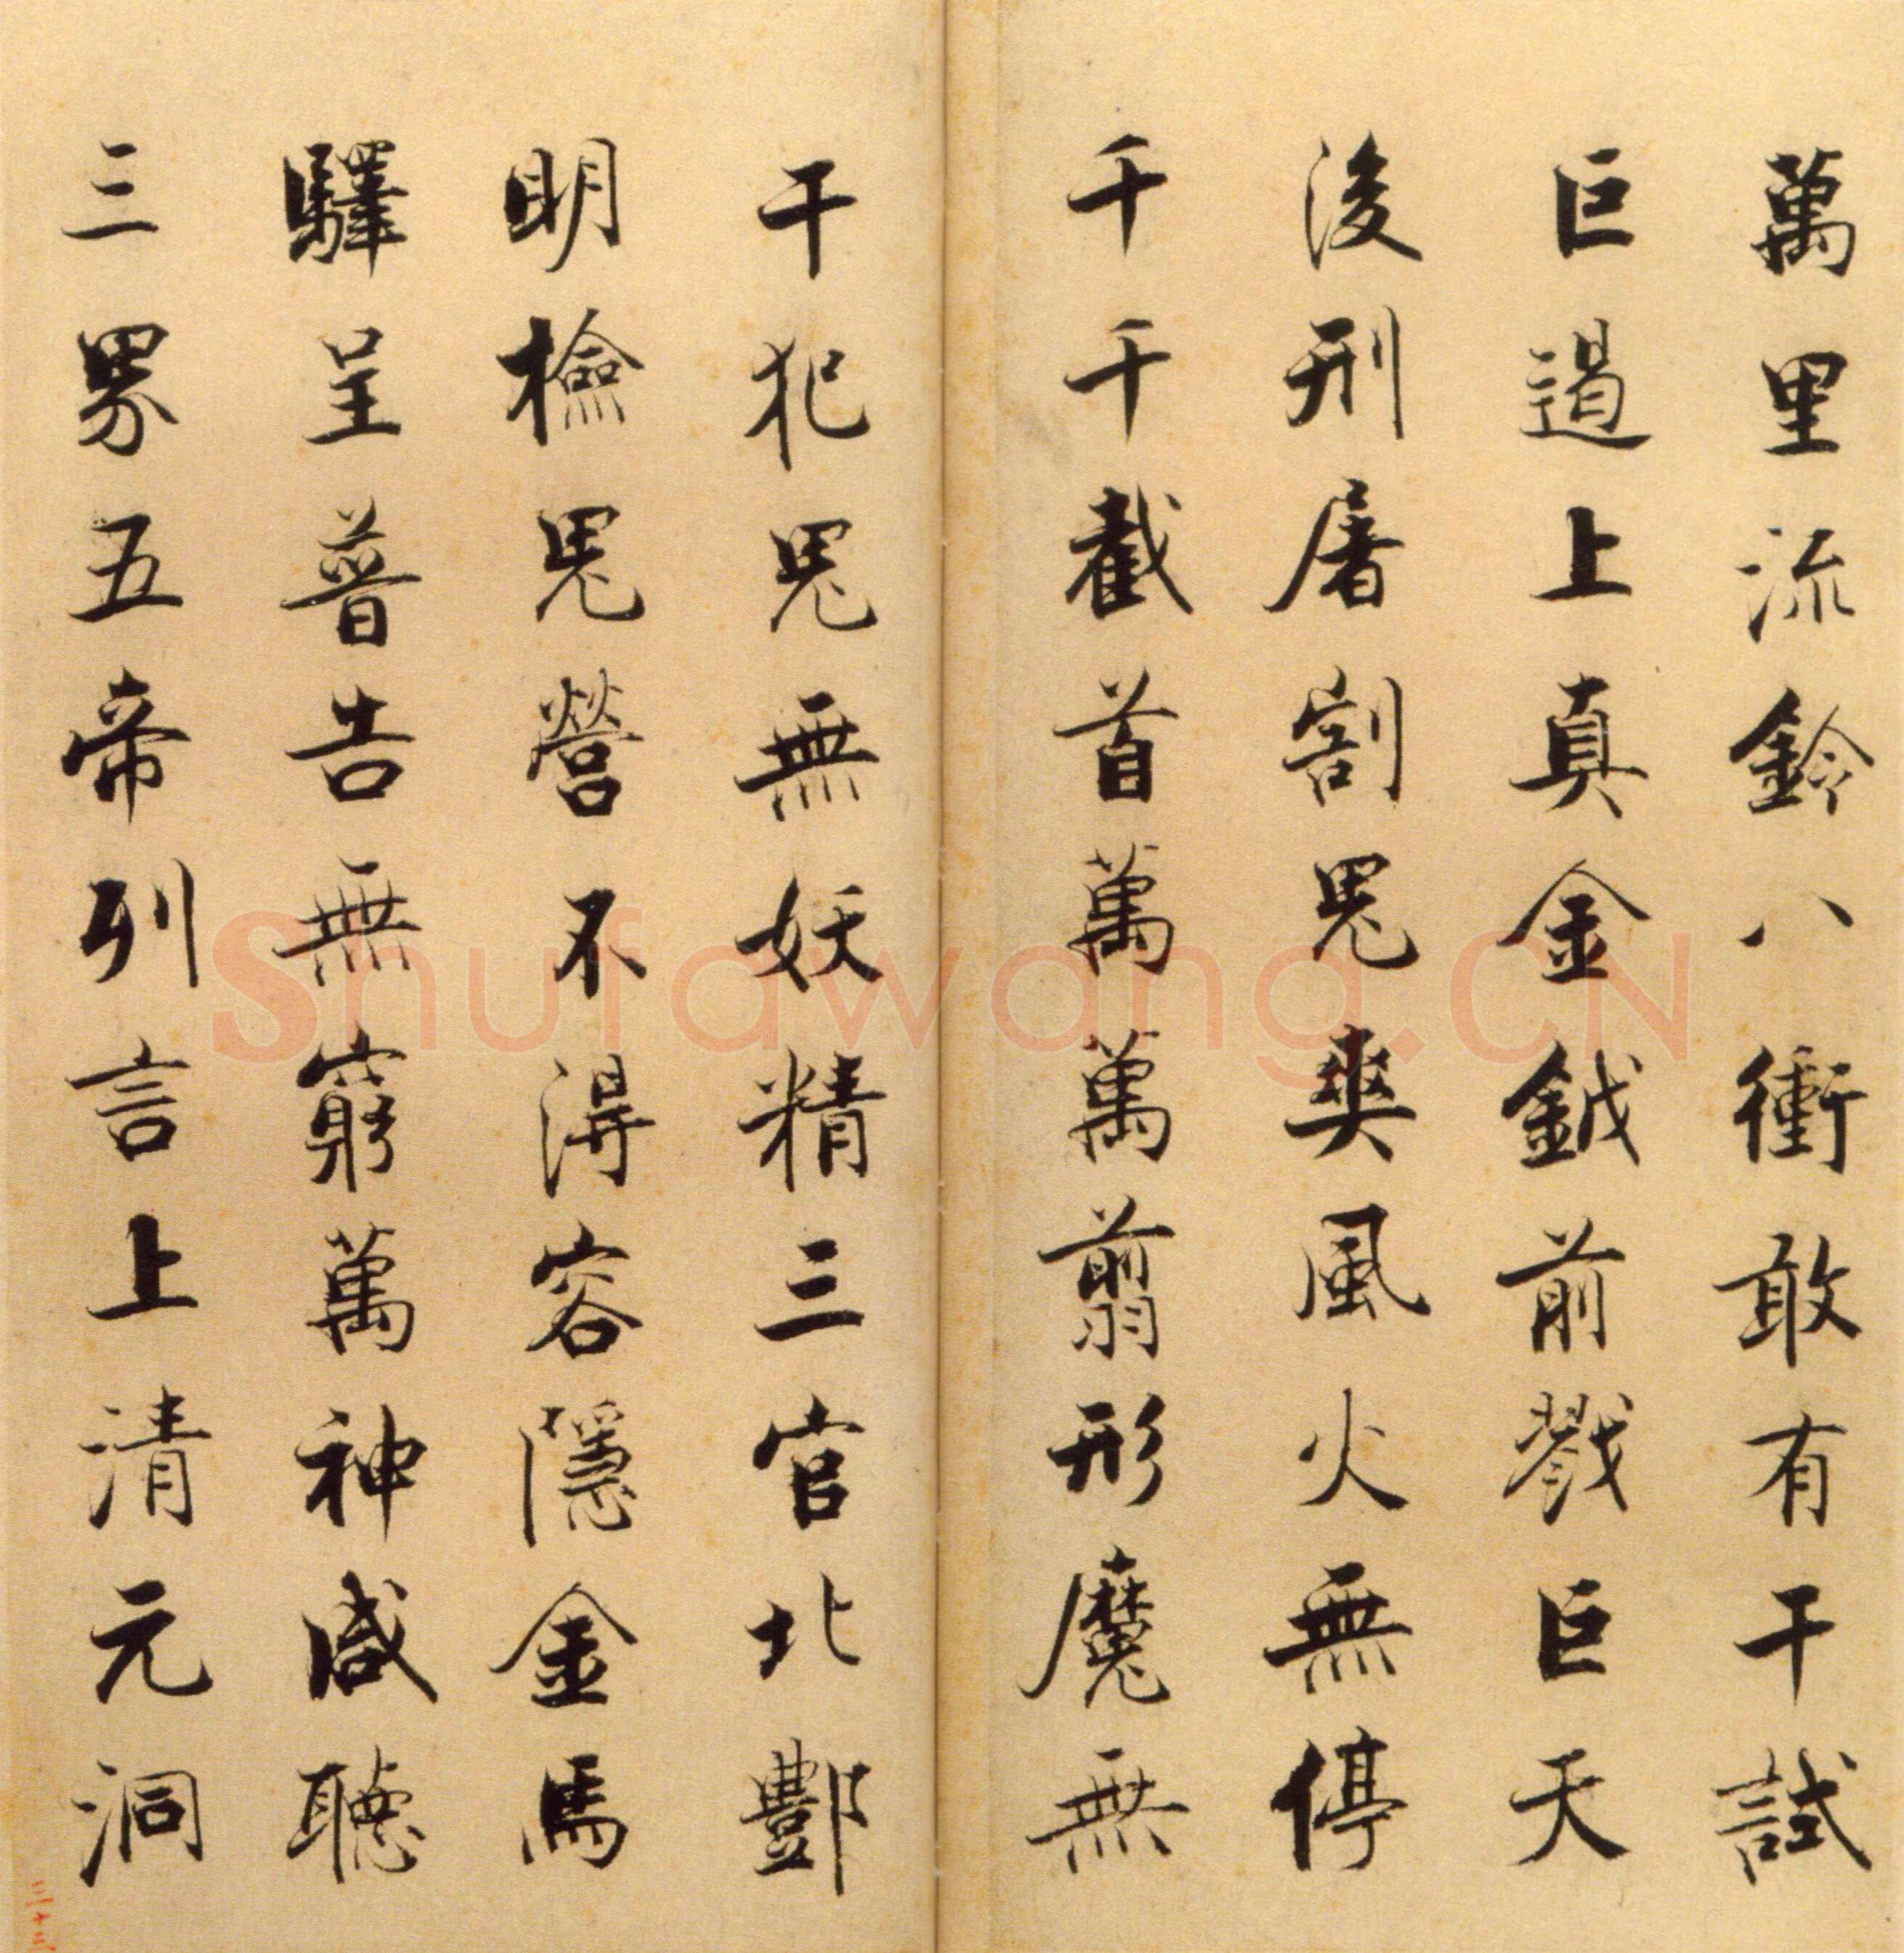 萬里流鈴八衝敢有干試
巨遏上真金鉞前戮巨天
後刑屠割鬼爽風火無停
千千截首萬萬翦形魔無
干犯鬼無妖精三官北酆
明檢鬼營不得容隱金馬
驛呈普告無窮萬神咸聽
三界五帝列言上清元洞
Shufawang.CN